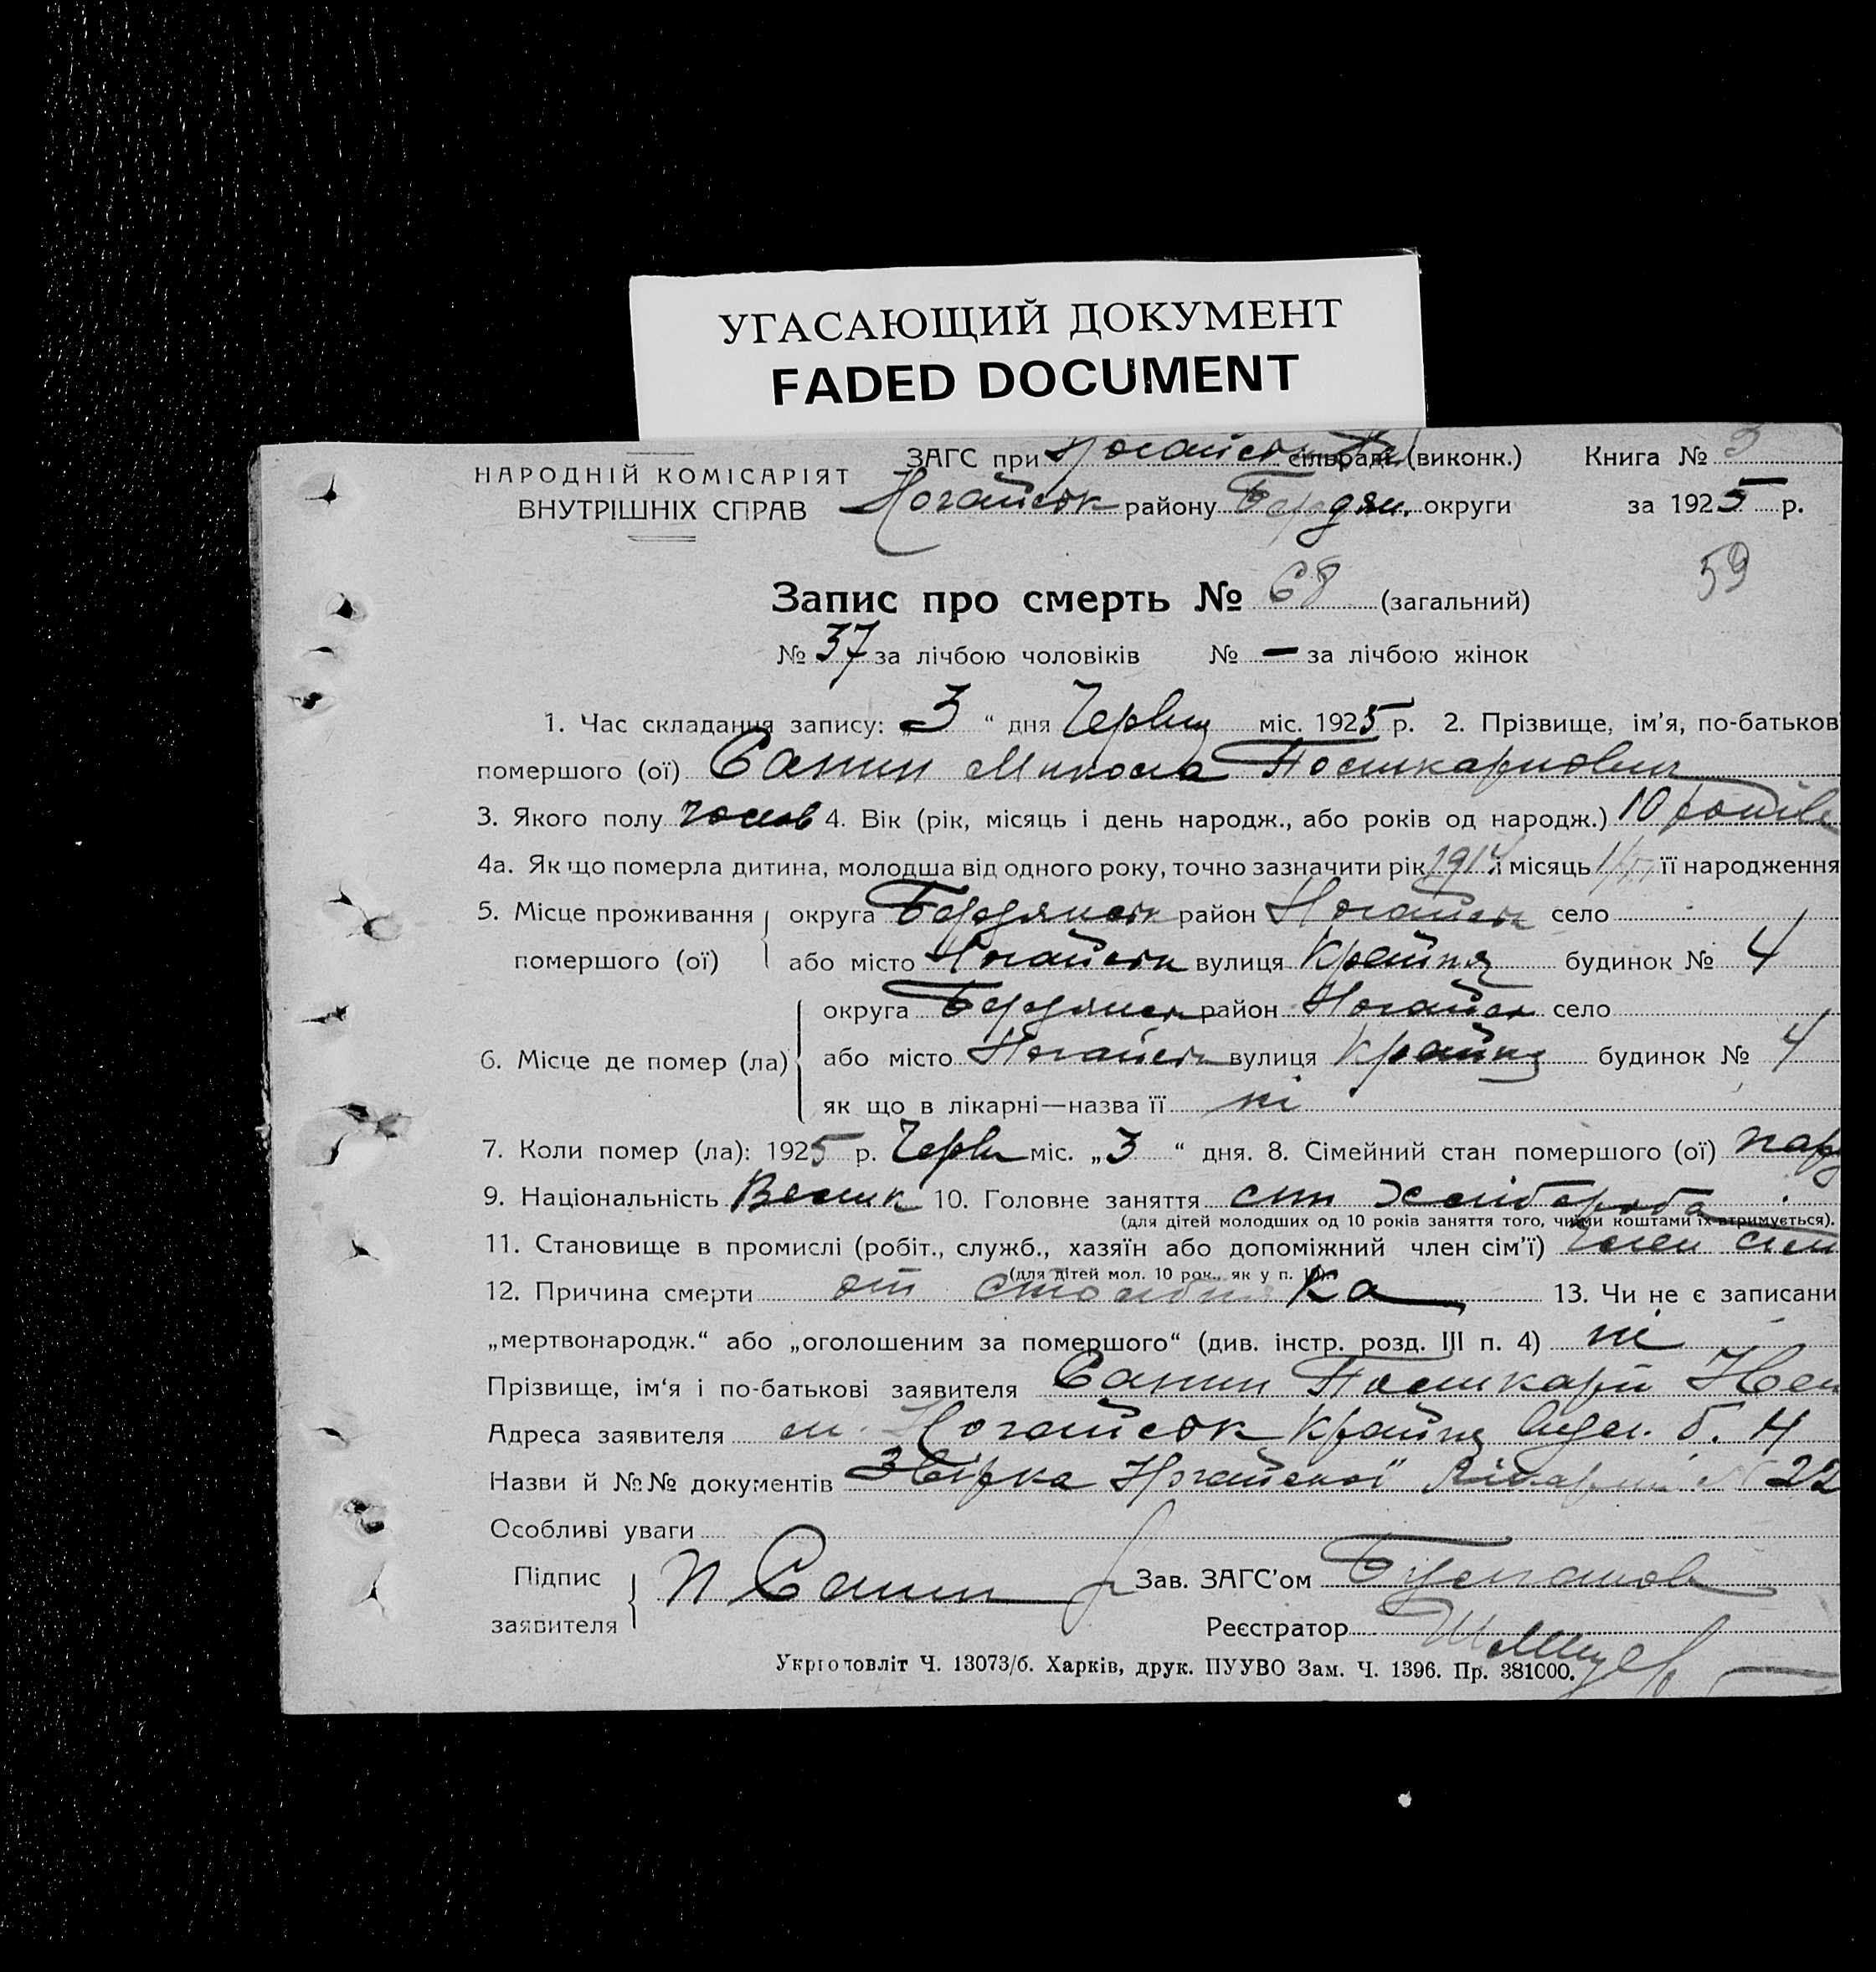 УГАСАЮЩИЙ ДОКУМЕНТ
FADED DOCUMENT
НАРОДНІЙ КОМІСАРІЯТ
ВНУТРІШНІХ СПРАВ
ЗАГС при Ногайськ сільраді (виконк.) Книга №
Ногайськ району Бердян. округи за 1925 р.
59
Запис про смерть № 68 (загальний)
№ 37 за лічбою чоловіків № — за лічбою жінок
1. Час складання запису: „3“ дня Червня міс. 1925 р. 2. Прізвище, ім’я, по-батьков
помершого (ої) Санин Микола
3. Якого полу чолов 4. Вік (рік, місяць і день народж., або років од народж.) 10 років
4а. Як що померла дитина, молодша від одного року, точно зазначити рік 1914 і місяць її народження
5. Місце проживання помершого (ої) округа Бердянськ район Ногайськ село
або місто Ногайськ вулиця Крайня будинок № 4
6. Місце де помер (ла) округа Бердянськ район Ногайськ село
або місто Ногайськ вулиця Крайня будинок № 4
як що в лікарні—назва її ні
7. Коли помер (ла): 1925 р. Червн міс. „3“ дня. 8. Сімейний стан помершого (ої)
9. Національність 10. Головне заняття син хлібороба
(для дітей молодших од 10 років заняття того, чиїми коштами їх втримується).
11. Становище в промислі (робіт., служб., хазяїн або допоміжний член сім’ї) член сім
(для дітей мол. 10 рок., як у п. 10).
12. Причина смерти от столбняка 13. Чи не є записани
„мертвонародж.“ або „оголошеним за помершого“ (див. інстр. розд. III п. 4) ні
Прізвище, ім‘я і по-батькові заявителя Санин
Адреса заявителя м. Ногайськ Крайня вул. б. 4
Назви й №№ документів Звірка Ногайської Лікарні № 22
Особливі уваги
Підпис заявителя П Санин Зав. ЗАГС’ом
Реєстратор
Укрголовліт Ч. 13073/б. Харків, друк. ПУУВО Зам. Ч. 1396. Пр. 381000.